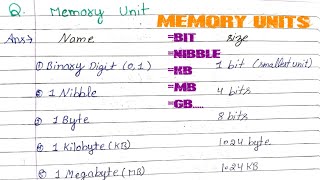 Q. Memory Unit
MEMORY UNITS
Ans→ Name size
=BIT
=NIBBLE
=KB
=MB
=GB.....
① Binary Digit (0,1) 1 bit (smallest unit)
② 1 Nibble 4 bits
③ 1 Byte 8 bits
④ 1 Kilobyte (KB) 1024 byte
⑤ 1 Megabyte (MB) 1024 KB